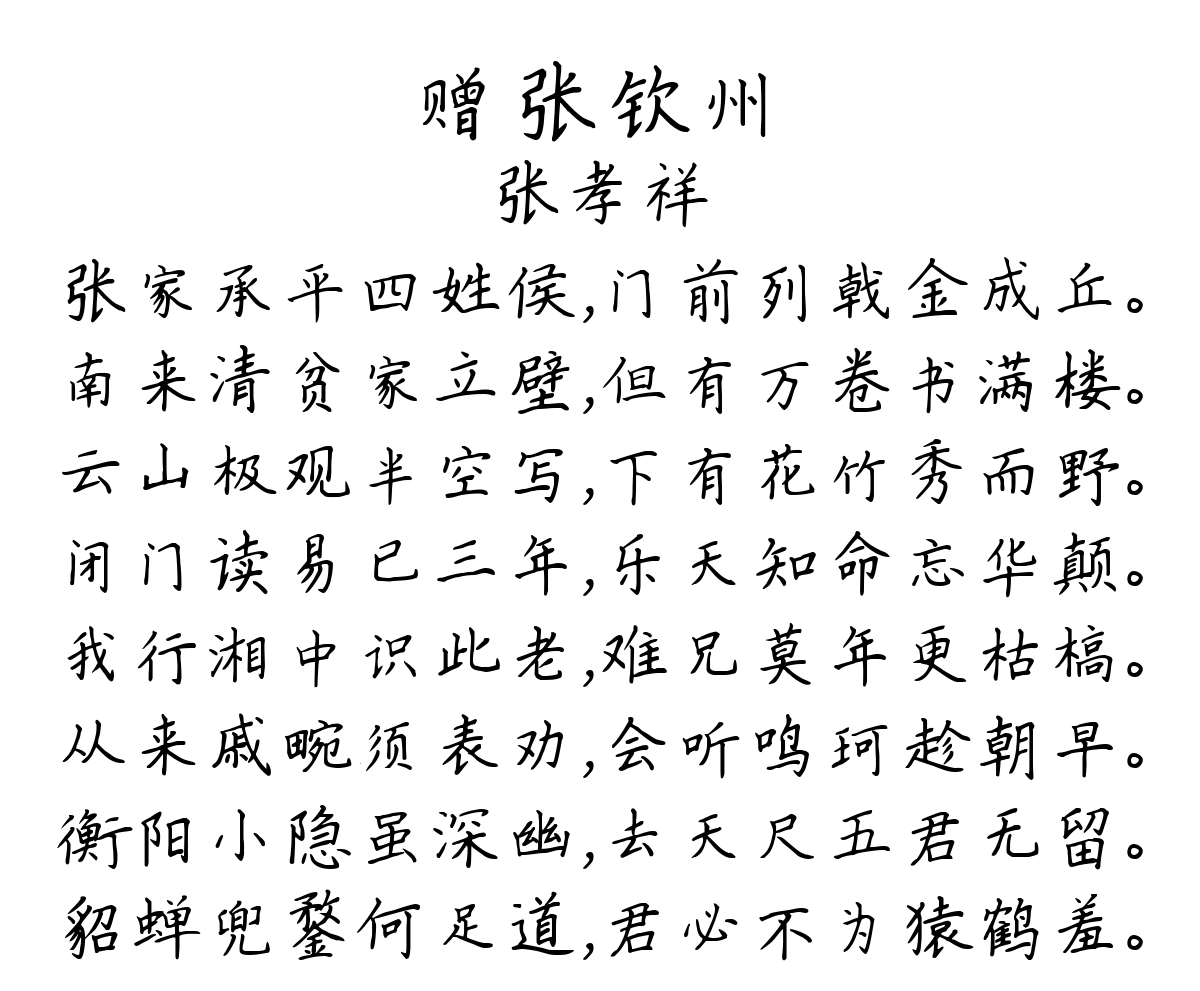 赠张钦州
张孝祥
张家承平四姓侯,门前列戟金成丘。
南来清贫家立壁,但有万卷书满楼。
云山极观半空写,下有花竹秀而野。
闭门读易已三年,乐天知命忘华颠。
我行湘中识此老,难兄莫年更枯槁。
从来戚畹须表劝,会听鸣珂趁朝早。
衡阳小隐虽深幽,去天尺五君无留。
貂蝉兜鍪何足道,君必不为猿鹤羞。